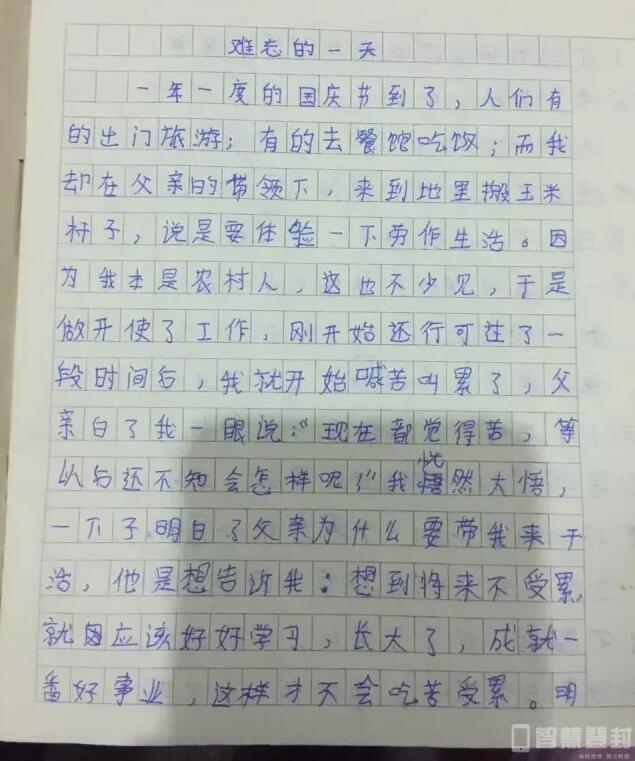 难忘的一天
一年一度的国庆节到了，人们有
的出门旅游；有的去餐馆吃饭；而我
却在父亲的带领下，来到地里搬玉米
杆子，说是要体验一下劳作生活。因
为我本是农村人，这也不少见，于是
做开使了工作，刚开始还行可过了一
段时间后，我就开始喊苦叫累了，父
亲白了我一眼说：“现在都觉得苦，等
以后还不知会怎样呢！”我恍然大悟，
一下子明白了父亲为什么要带我来干
活，他是想告诉我：想到将来不受累，
就应该好好学习，长大了，成就一
番好事业，这样才不会吃苦受累。明
智慧登封